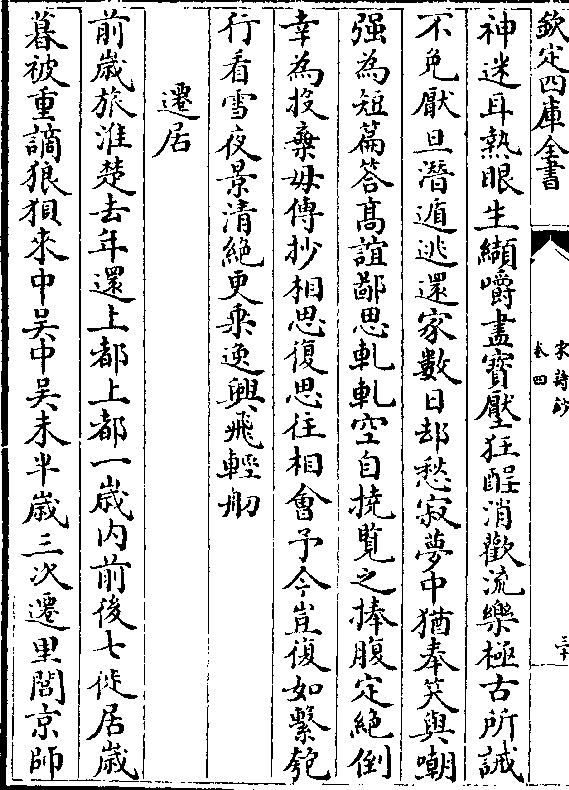 欽定四庫全書
宋詩鈔
卷四
三十
神迷耳熱眼生纈嚼盡寳壓狂酲消歡流樂極古所誡
不免厭旦潛遁逃還家數日却愁寂夢中猶奉笑與嘲
强為短篇答髙誼鄙思軋軋空自撓覧之捧腹定絶倒
幸為投棄毋傳抄相思復思往相會予今豈復如繫匏
行看雪夜景清絶更乘逸興飛輕舠
遷居
前歳旅淮楚去年還上都上都一歳内前後七徙居歳
暮被重謫狼狽來中吴中吴未半歳三次遷里閭京師